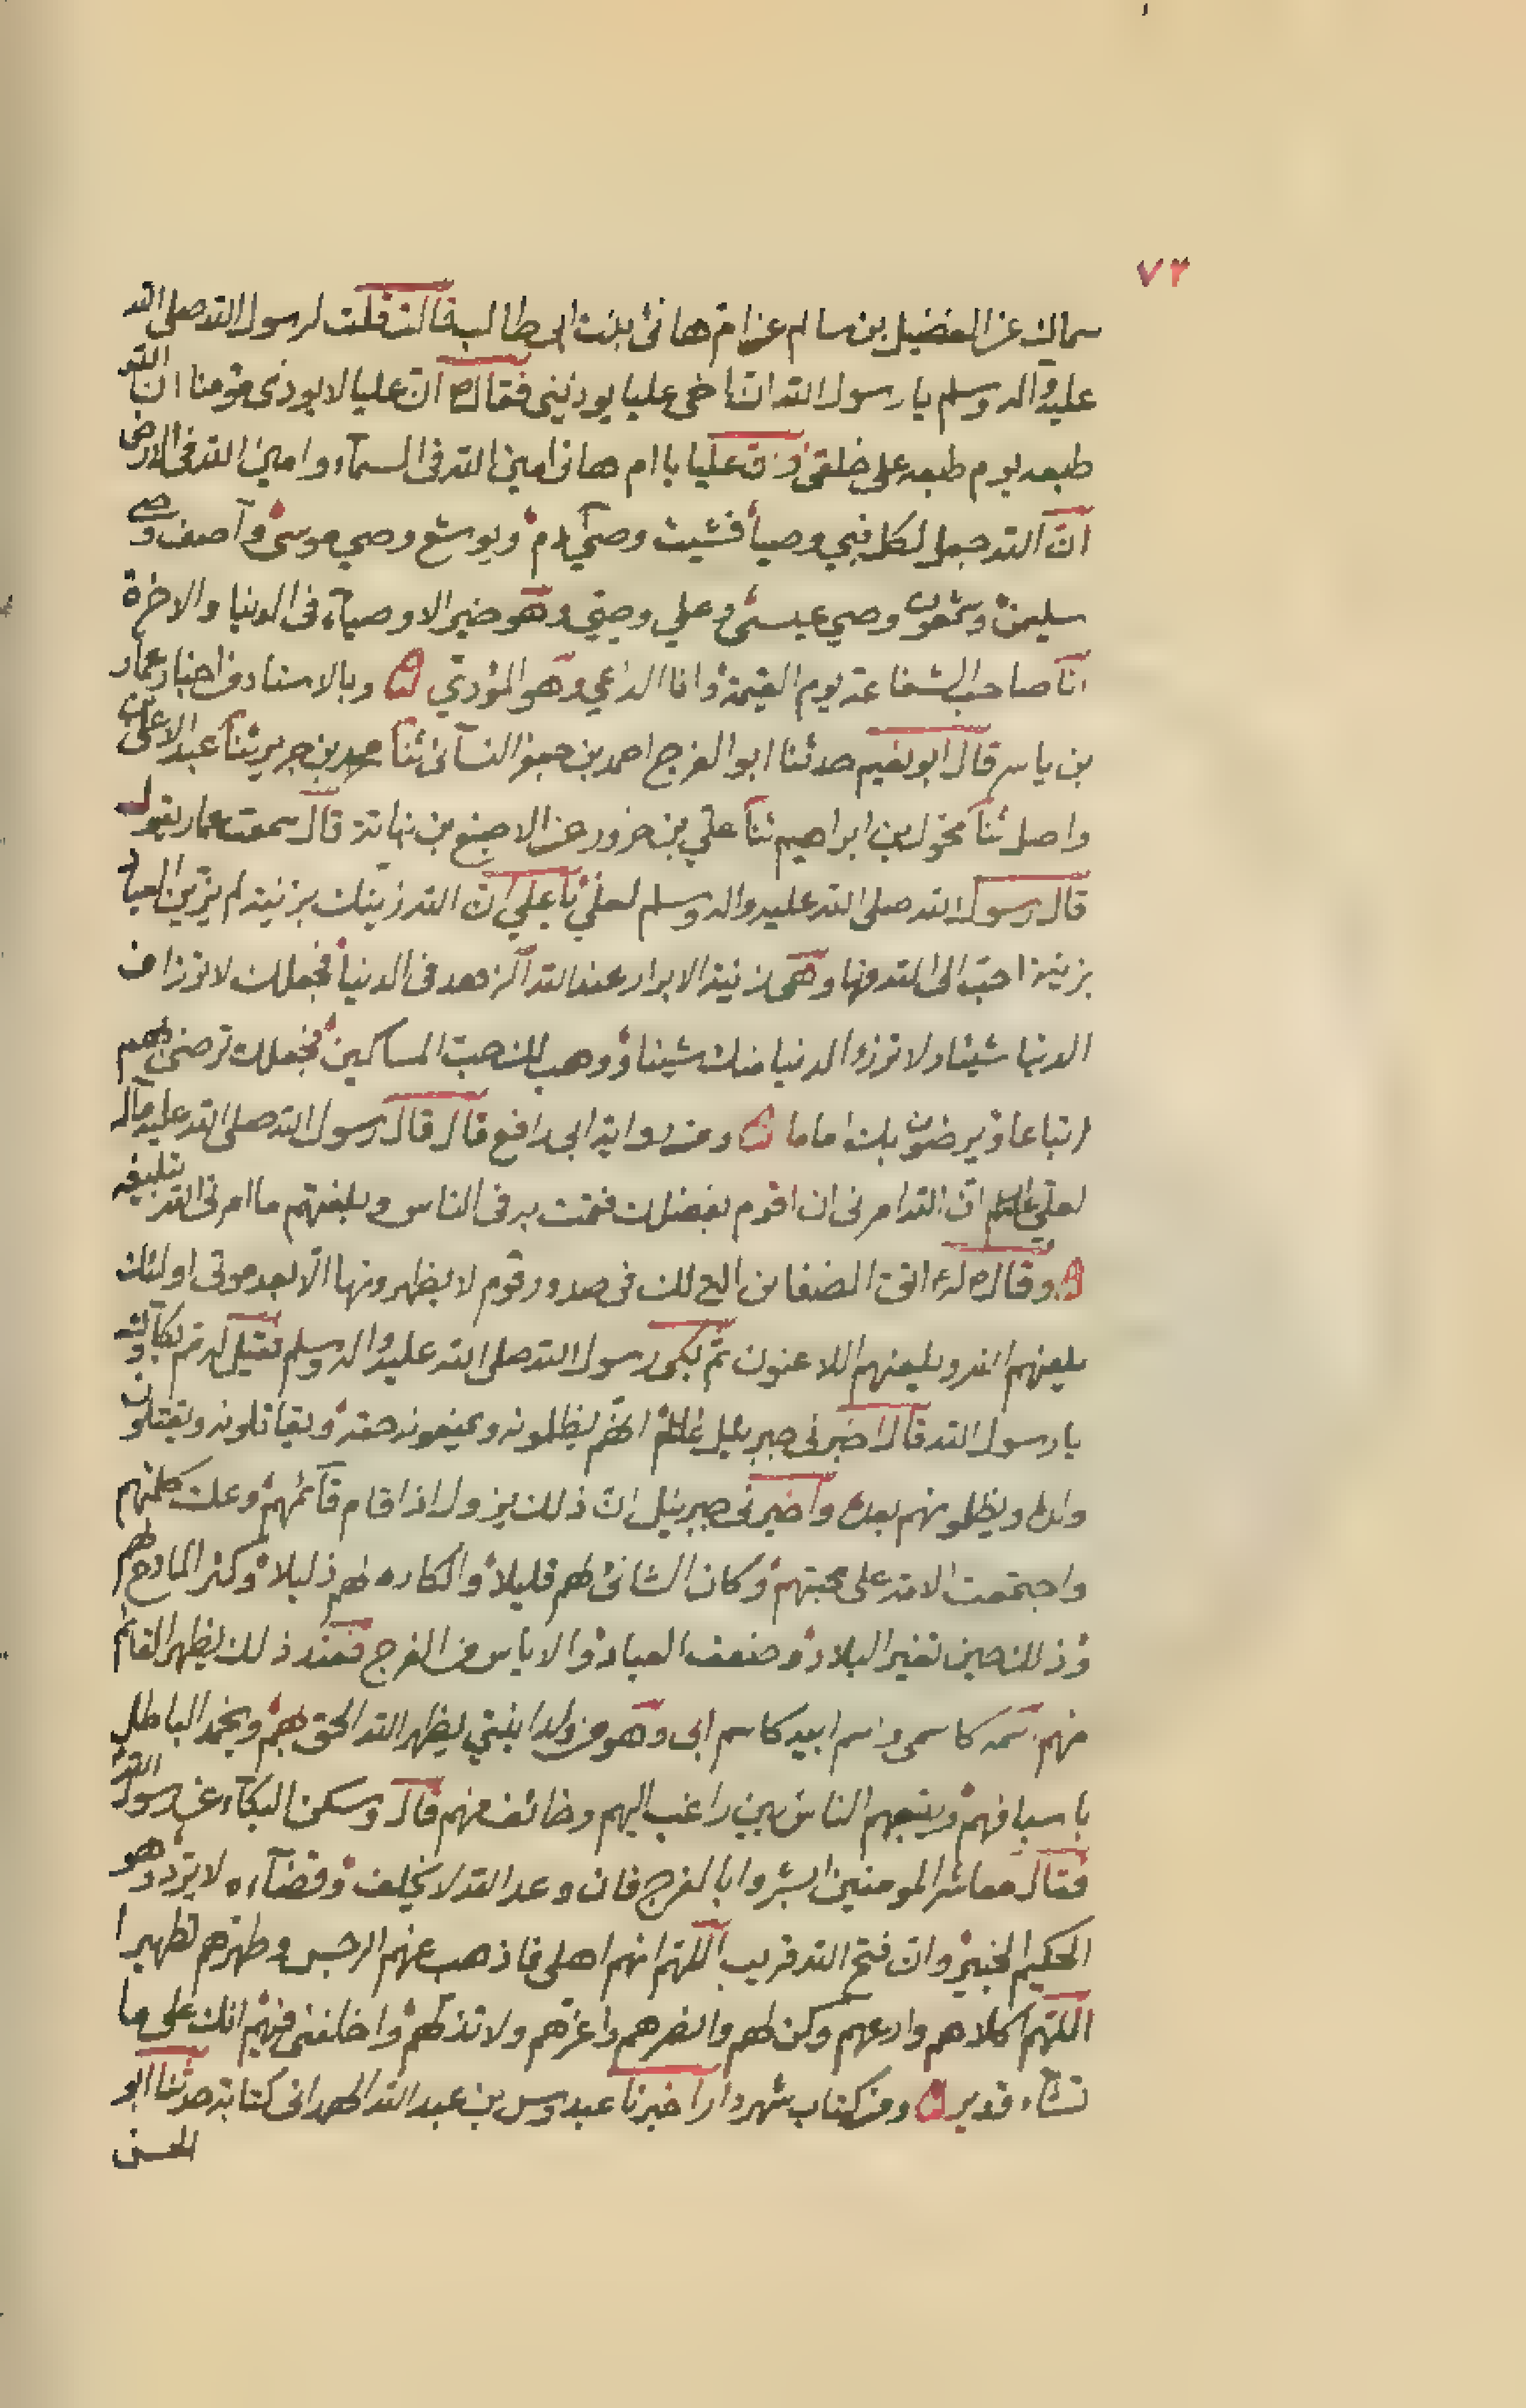 ٧٣
سماك عن الفضيل بن سالم عن ام هانئ بنت ابى طالب قالت قلت لرسول الله صلى الله
عليه وآله وسلم يا رسول الله ان اخى عليا يوذينى فقال ان عليا لا يوذى مؤمنا ان الله
طبعه يوم طبعه على خلقى ان عليا يا ام هانى امين الله فى السمآء وامين الله فى الارض
ان الله جعل لكل نبي وصيا فشيث وصي آدم ويوشع وصي موسى وآصف وصي
سليمن وشمعون وصي عيسى وعلي وصيى وهو خير الاوصيآء فى الدنيا والاخرة
انا صاحب الشفاعة يوم القيمة وانا الداعي وهو المؤدي وبالاسناد من اخبار عمار
بن ياسر قال ابو نعيم حدثنا ابو الفرج احمد بن جعفر النسآئى ثنا محمد بن جرير ثنا عبد الاعلى بن
واصل ثنا مخول بن ابراهيم ثنا علي بن حزور عن الاصبغ بن نباتة قال سمعت عمار يقول
قال رسول الله صلى الله عليه واله وسلم لعلي يا علي ان الله زينك بزينة لم يزين العباد
بزينة احب الى الله منها وهى زينة الابرار عند الله الزهد فى الدنيا فجعلك لا ترزا من
الدنيا شيئا ولا ترزا الدنيا منك شيئا ووهب لك حب المساكين فجعلك ترضى بهم
اتباعا ويرضون بك اماما ومن رواية ابى رافع قال قال رسول الله صلى الله عليه وآله
لعلي ان الله امرنى ان اقوم بفضلك فقمت به فى الناس وبلغتهم ما امرنى الله بتبليغه
وقال له اتق الضغاين التى لك فى صدور قوم لا يظهرونها الا بعد موتى اولئك
يلعنهم الله ويلعنهم اللاعنون ثم بكى رسول الله صلى الله عليه واله وسلم فقيل له مم بكآؤك
يا رسول الله قال اخبرنى جبرئيل انهم يظلمونه ويمنعونه حقه ويقاتلونه ويقتلون
ولده ويظلمونهم بعده واخبرنى جبرئيل ان ذلك يزول اذا قام قآئمهم وعلت كلمتهم
واجتمعت الامة على محبتهم وكان الشانئ لهم قليلا والكاره لهم ذليلا وكثر المادح لهم
وذلك حين تغير البلاد وضعف العباد والاياس من الفرج فعند ذلك يظهر القائم
منهم اسمه كاسمى واسم ابيه كاسم ابى وهو من ولد ابنتي يظهر الله الحق بهم ويخمد الباطل
باسيافهم ويتبعهم الناس بين راغب اليهم وخائف منهم قال وسكن البكآء عن رسول الله
فقال معاشر المومنين ابشروا بالفرج فان وعد الله لا يخلف وقضآءه لا يرد وهو
الحكيم الخبير وان فتح الله قريب اللهم انهم اهلى فاذهب عنهم الرجس وطهرهم تطهيرا
اللهم اكلاهم وارعهم وكن لهم وانصرهم واعزهم ولا تذلهم واخلفنى فيهم انك على ما
تشآء قدير ومن كتاب شهردار اخبرنا عبدوس بن عبد الله الهمدانى كتابة حدثنا ابو
الحسن